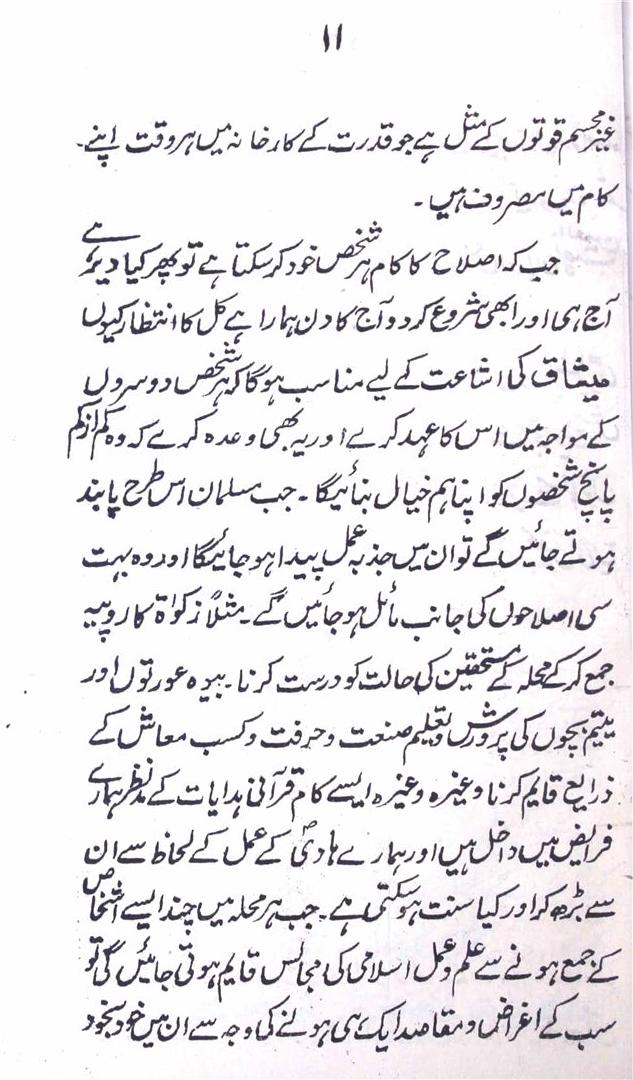 ۱۱
غیر مجسم قوتوں کے مثل ہے جو قدرت کے کارخانہ میں ہر وقت اپنے
کام میں مصروف ہیں۔
جب کہ اصلاح کا کام ہر شخص خود کر سکتا ہے تو پھر کیا دیر ہے
آج ہی اور ابھی شروع کر دو آج کا دن ہمارا ہے کل کا انتظار کیوں
میثاق کی اشاعت کے لیے مناسب ہوگا کہ ہر شخص دوسروں
کے مواجہ میں اس کا عہد کرے اور یہ بھی وعدہ کرے کہ وہ کم از کم
پانچ شخصوں کو اپنا ہم خیال بنائیگا۔ جب مسلمان اس طرح پابند
ہوتے جائیں گے تو ان میں جذبہ عمل پیدا ہو جائیگا اور وہ بہت
سی اصلاحوں کی جانب مائل ہو جائیں گے۔ مثلاً زکوٰۃ کا روپیہ
جمع کر کے محلہ کے مستحقین کی حالت کو درست کرنا۔ بیوہ عورتوں اور
یتیم بچوں کی پرورش و تعلیم صنعت و حرفت و کسب معاش کے
ذرایع قایم کرنا وغیرہ وغیرہ ایسے کام قرآنی ہدایات کے مدنظر ہمارے
فرایض میں داخل ہیں اور ہمارے ہادیؐ کے عمل کے لحاظ سے ان
سے بڑھ کر اور کیا سنت ہو سکتی ہے۔ جب ہر محلہ میں چند ایسے اشخاص
کے جمع ہونے سے علم و عمل اسلامی کی مجالس قایم ہوتی جائیں گی تو
سب کے اغراض و مقاصد ایک ہی ہونے کی وجہ سے ان میں خود بخود